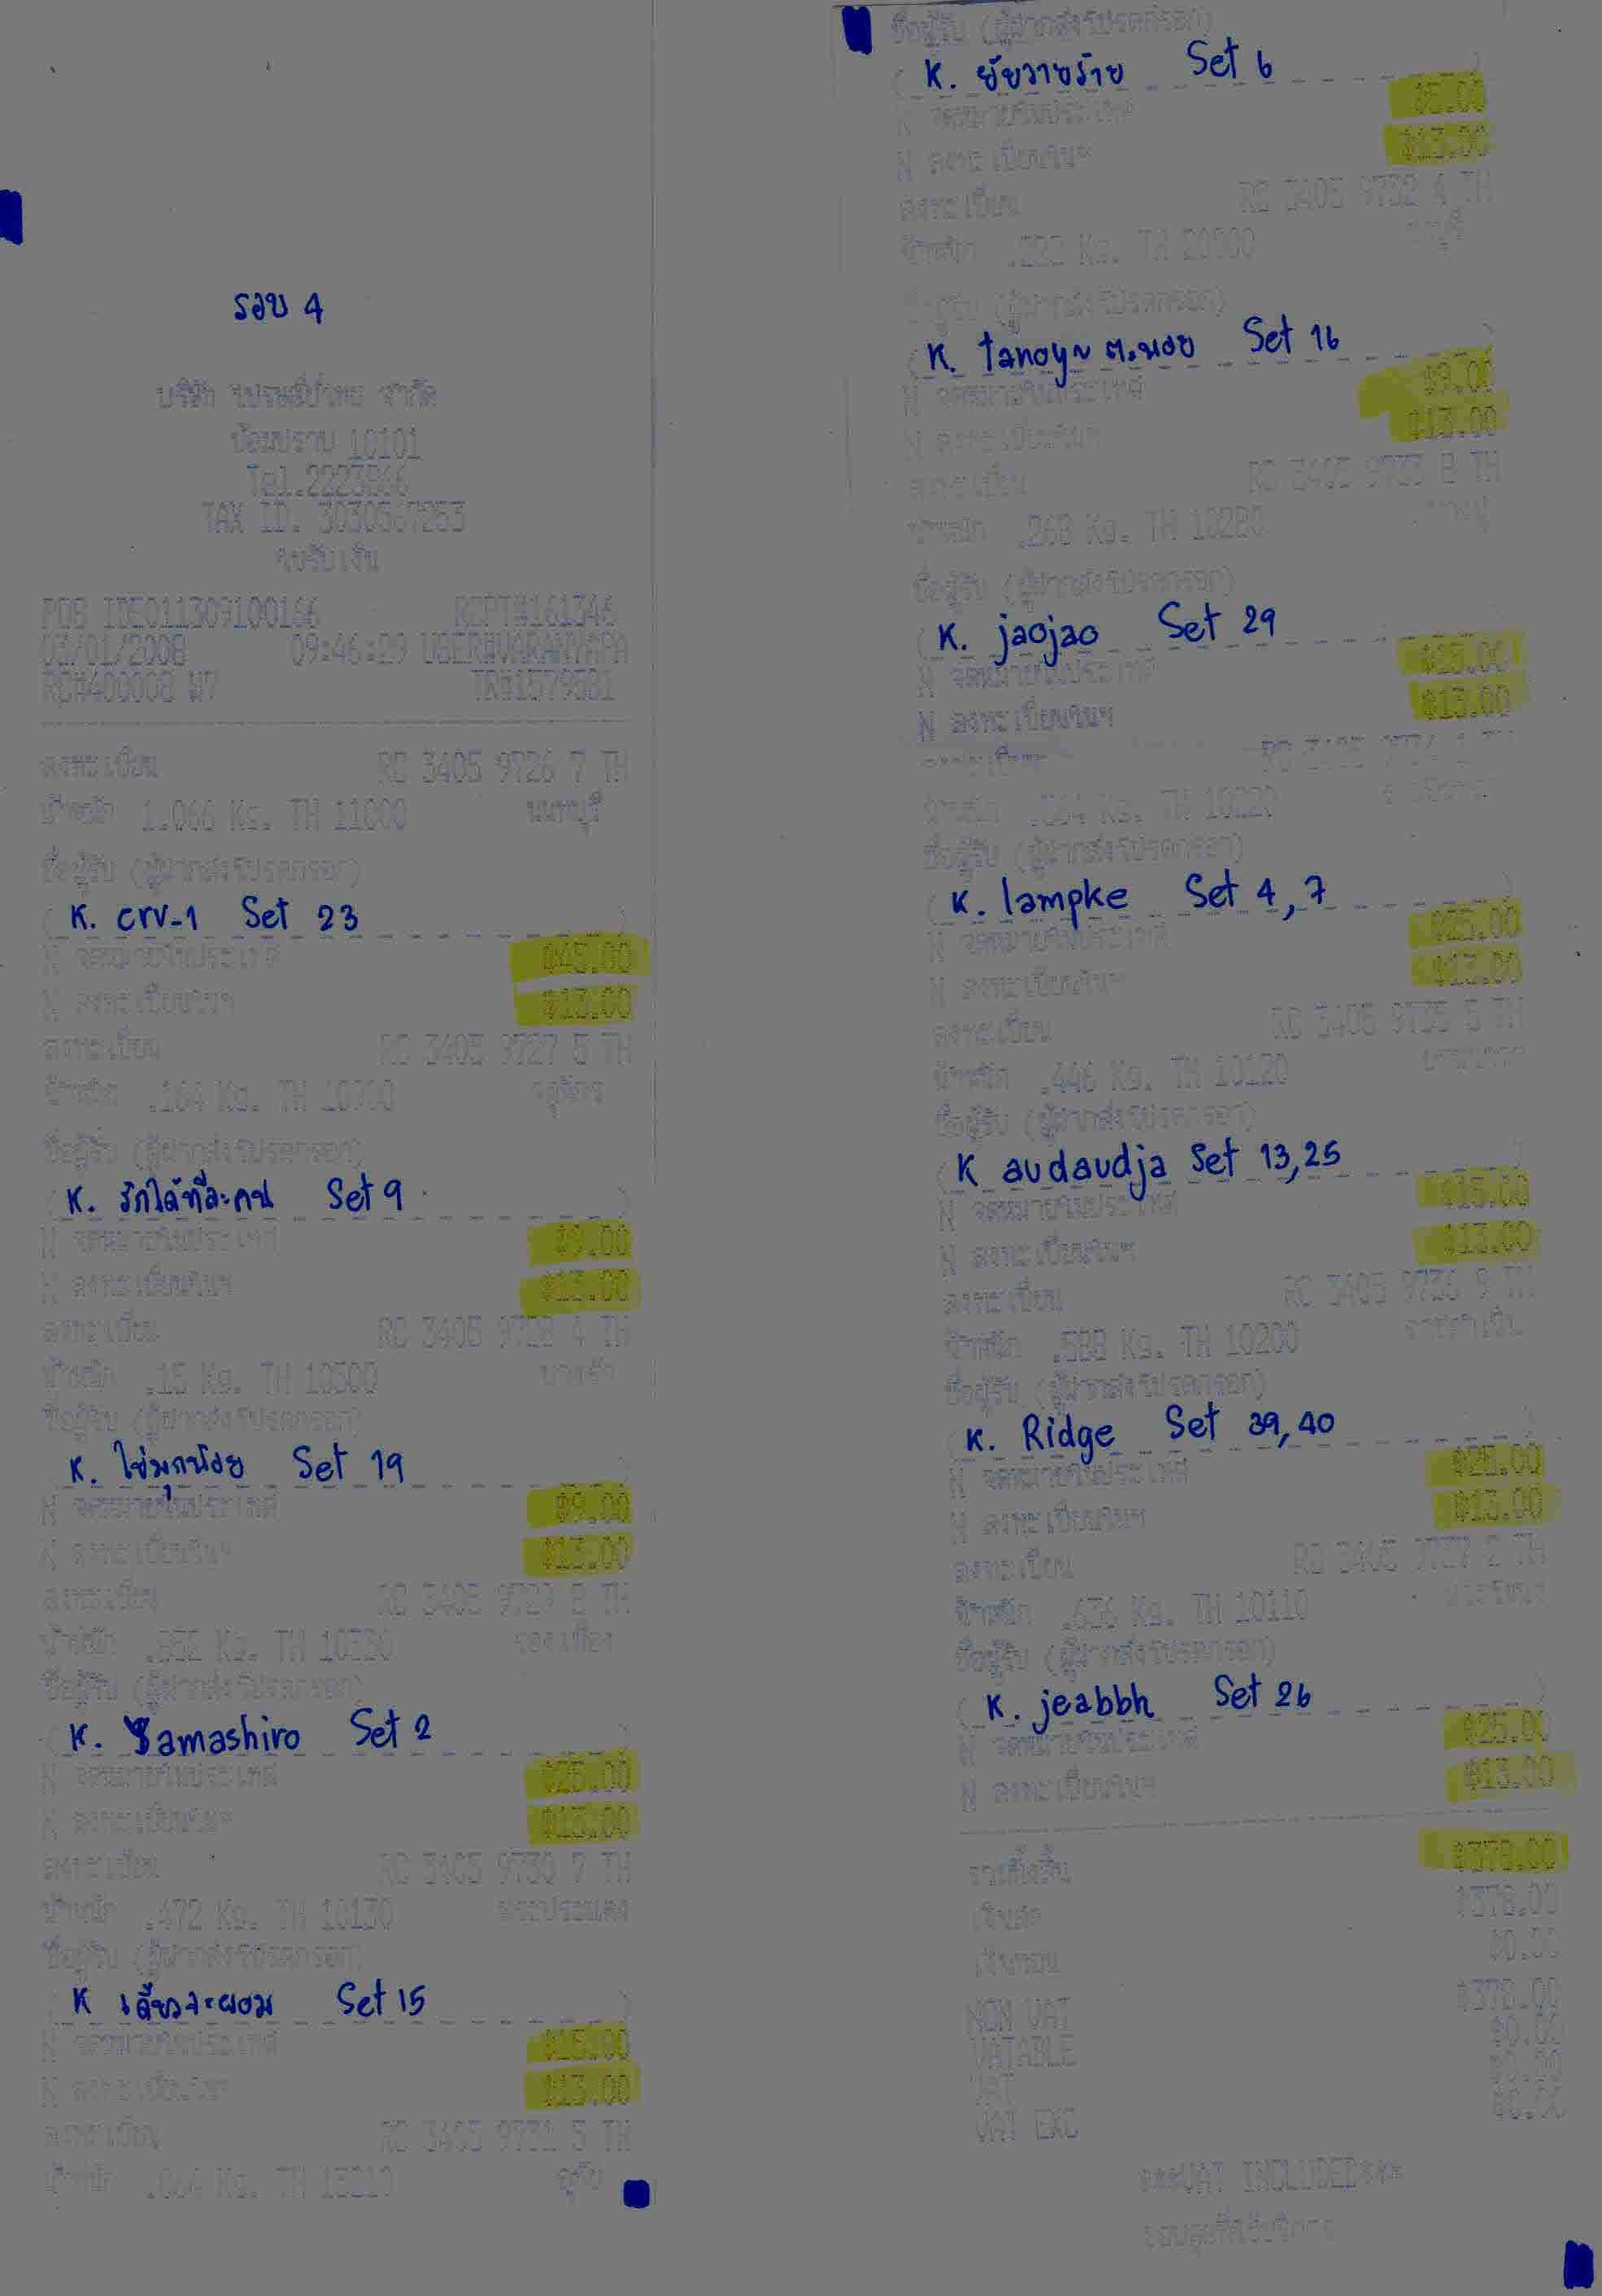 รอบ 4
บริษัท ไปรษณีย์ไทย จำกัด
ป้อมปราบ 10101
Tel.2223866
TAX ID. 3030567253
ใบรับเงิน
POS
03/01/2008 09:46:29
ลงทะเบียน RC 3405 9726 7 TH
น้ำหนัก 1.066 Kg. TH 11000 นนทบุรี
ชื่อผู้รับ (ผู้ฝากส่งโปรดกรอก)
K. crv-1 Set 23
N จดหมายในประเทศ ฿45.00
N ลงทะเบียนในฯ ฿13.00
ลงทะเบียน RC 3405 9727 5 TH
น้ำหนัก .164 Kg. TH 10900 จตุจักร
ชื่อผู้รับ (ผู้ฝากส่งโปรดกรอก)
K. รักได้ทีละคน Set 9
N จดหมายในประเทศ ฿9.00
N ลงทะเบียนในฯ ฿13.00
ลงทะเบียน RC 3405 9728 4 TH
น้ำหนัก .15 Kg. TH 10500 บางรัก
ชื่อผู้รับ (ผู้ฝากส่งโปรดกรอก)
K. ไข่มุกน้อย Set 19
N จดหมายในประเทศ ฿9.00
N ลงทะเบียนในฯ ฿13.00
ลงทะเบียน RC 3405 9729 8 TH
น้ำหนัก Kg. TH 10330
ชื่อผู้รับ (ผู้ฝากส่งโปรดกรอก)
K. Yamashiro Set 2
N จดหมายในประเทศ ฿25.00
N ลงทะเบียนในฯ ฿13.00
ลงทะเบียน RC 3405 9730 7 TH
น้ำหนัก .472 Kg. TH 10130 พระประแดง
ชื่อผู้รับ (ผู้ฝากส่งโปรดกรอก)
K เดี๋ยวจะผอม Set 15
N จดหมายในประเทศ ฿15.00
N ลงทะเบียนในฯ ฿13.00
ลงทะเบียน RC 3405 9731 5 TH
น้ำหนัก .064 Kg. TH 13210 อุทัย
ชื่อผู้รับ (ผู้ฝากส่งโปรดกรอก)
K. ยัยวายร้าย Set 6
N จดหมายในประเทศ ฿5.00
N ลงทะเบียนในฯ ฿13.00
ลงทะเบียน RC 3405 9732 4 TH
น้ำหนัก .232 Kg. TH 20000 ชลบุรี
ชื่อผู้รับ (ผู้ฝากส่งโปรดกรอก)
K. tanoy~ ต.นอย Set 16
N จดหมายในประเทศ ฿9.00
N ลงทะเบียนในฯ ฿13.00
ลงทะเบียน RC 3405 9733 8 TH
น้ำหนัก .268 Kg. TH 10280
ชื่อผู้รับ (ผู้ฝากส่งโปรดกรอก)
K. jaojao Set 29
N จดหมายในประเทศ ฿15.00
N ลงทะเบียนในฯ ฿13.00
ลงทะเบียน
น้ำหนัก Kg. TH 10220
ชื่อผู้รับ (ผู้ฝากส่งโปรดกรอก)
K. lampke Set 4,7
N จดหมายในประเทศ ฿25.00
N ลงทะเบียนในฯ ฿13.00
ลงทะเบียน RC 3405 9735 5 TH
น้ำหนัก .446 Kg. TH 10120
ชื่อผู้รับ (ผู้ฝากส่งโปรดกรอก)
K audaudja Set 13,25
N จดหมายในประเทศ ฿15.00
N ลงทะเบียนในฯ ฿13.00
ลงทะเบียน RC 3405 9736 9 TH
น้ำหนัก .588 Kg. TH 10200
ชื่อผู้รับ (ผู้ฝากส่งโปรดกรอก)
K. Ridge Set 39,40
N จดหมายในประเทศ ฿25.00
N ลงทะเบียนในฯ ฿13.00
ลงทะเบียน RC 3405 9737 2 TH
น้ำหนัก .636 Kg. TH 10110
ชื่อผู้รับ (ผู้ฝากส่งโปรดกรอก)
K. jeabbh Set 26
N จดหมายในประเทศ ฿25.00
N ลงทะเบียนในฯ ฿13.00
รวมทั้งสิ้น ฿378.00
เงินสด ฿378.00
เงินทอน ฿0.00
NON VAT ฿378.00
VATABLE ฿0.00
VAT ฿0.00
VAT EXC ฿0.00
***VAT INCLUDED***